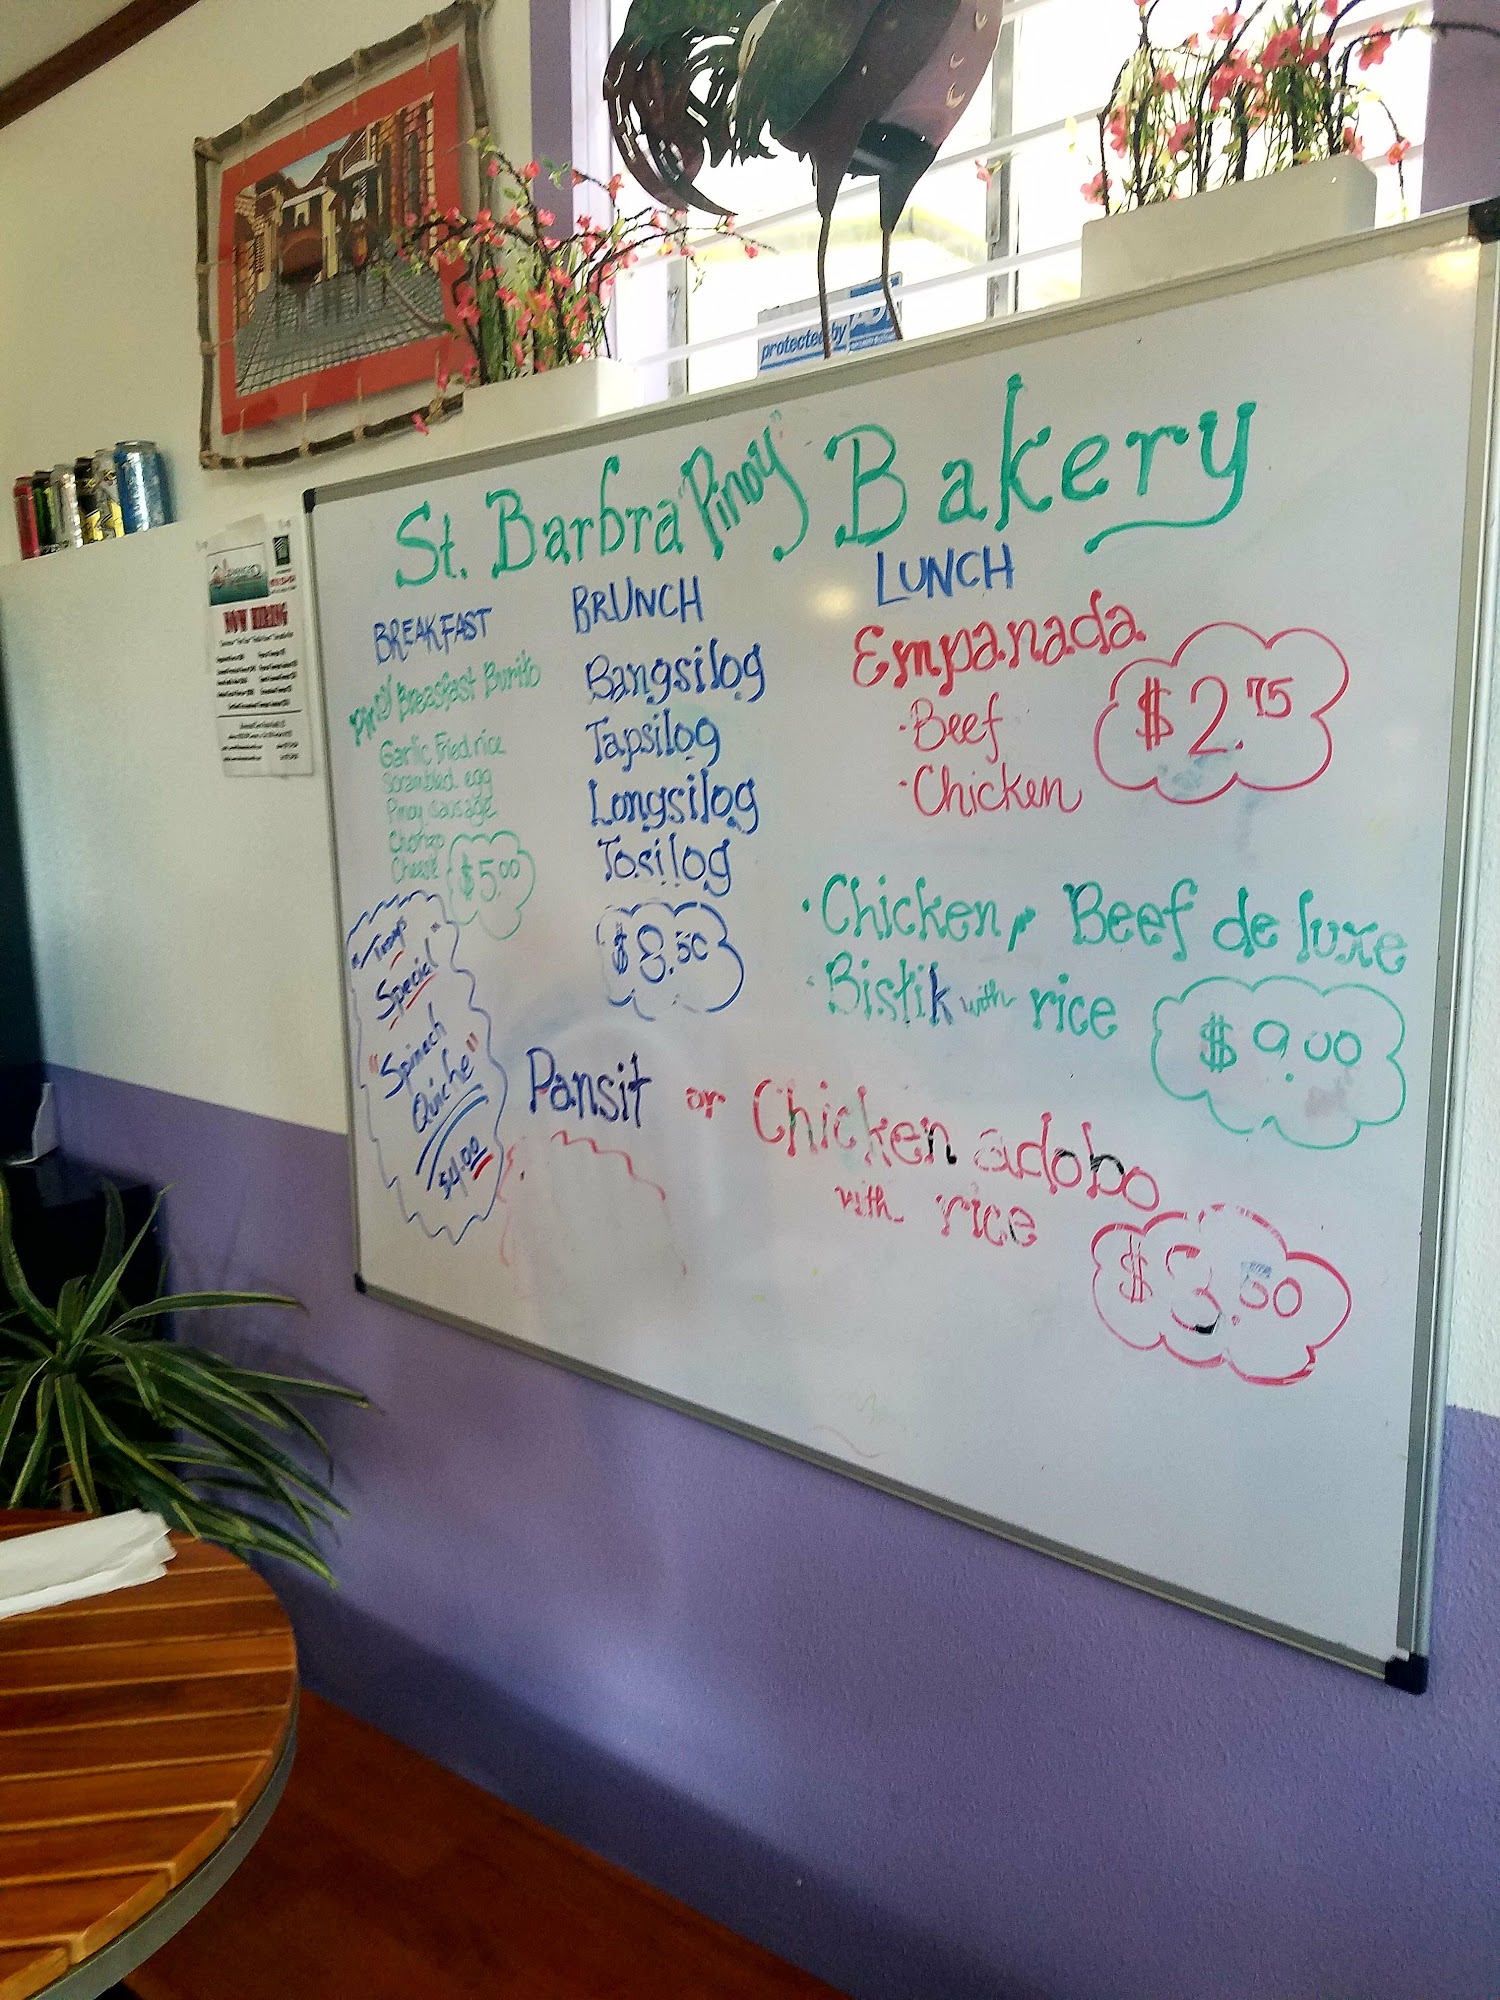 protected by
St. Barbra "Pinoy" Bakery
BREAKFAST
Pinoy Breakfast Burito
Garlic Fried rice
Scrambled egg
Pinoy sausage
Chorizo
Cheese
$5.00
"Troops
Special"
"Spinach
Quiche"
$4.00
BRUNCH
Bangsilog
Tapsilog
Longsilog
Tosilog
$8.50
LUNCH
Empanada
·Beef
·Chicken
$2.75
·Chicken, Beef de luxe
·Bistik with rice
$9.00
Pansit or Chicken adobo
with rice
$3.50
NOW HIRING